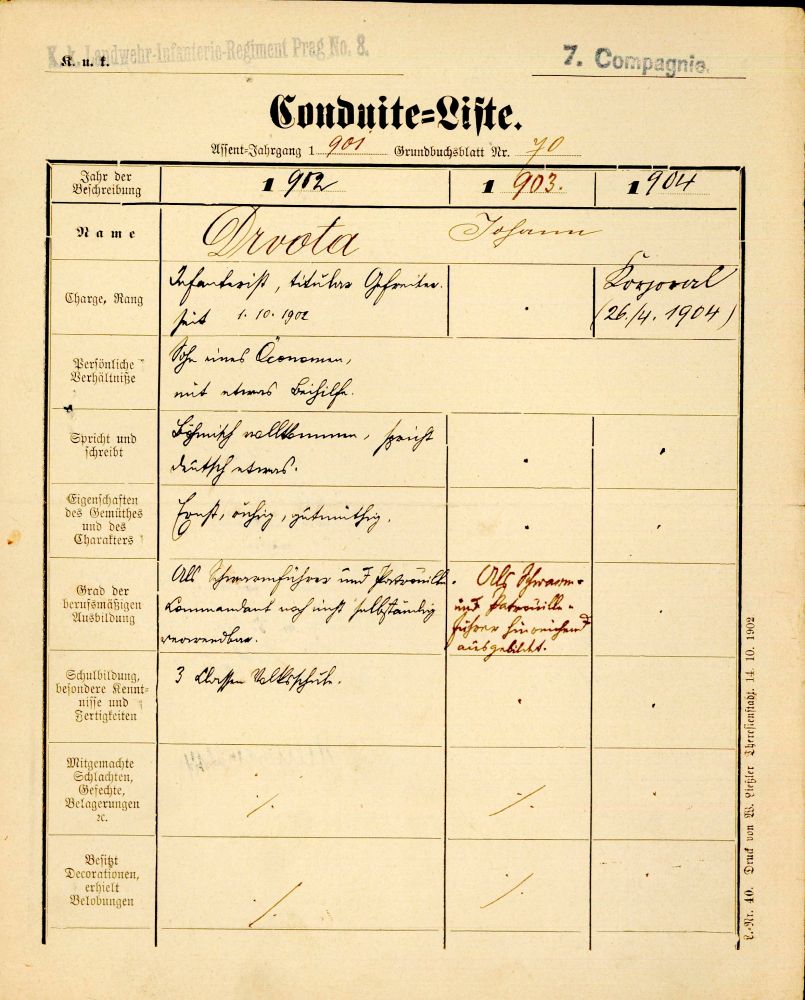 K. k. Landwehr-Infanterie-Regiment Prag No. 8.
K. u. k.
7. Compagnie.
Conduite-Liste.
Assent-Jahrgang 1 901 Grundbuchsblatt Nr. 70
Jahr der Beschreibung
1 902
1 903.
1 904
Name
Drvota Johann
Charge, Rang
Infanterist, titular Gefreiter.
seit 1. 10. 1902
.
Korporal
(26./4. 1904)
Persönliche
Verhältniße
Sohn eines Öconomen,
mit etwas Beihilfe.
Spricht und
schreibt
Böhmisch vollkommen, spricht
deutsch etwas.
.
.
Eigenschaften
des Gemüthes
und des
Charakters
Ernst, ruhig, gutmüthig.
.
.
Grad der
berufsmäßigen
Ausbildung
Als Schwarmführer und Patrouille-
Commandant noch nicht selbständig
verwendbar.
Als Schwarm-
und Patrouille-
führer hinreichend
ausgebildet.
.
Schulbildung,
besondere Kennt-
nisse und
Fertigkeiten
3 Classen Volksschule.
.
.
Mitgemachte
Schlachten,
Gefechte,
Belagerungen
2c.
./.
./.
.
Besitzt
Decorationen,
erhielt
Belobungen
./.
./.
.
L.-Nr. 40. Druck von W. Ließler Theresienstadt. 14. 10. 1902